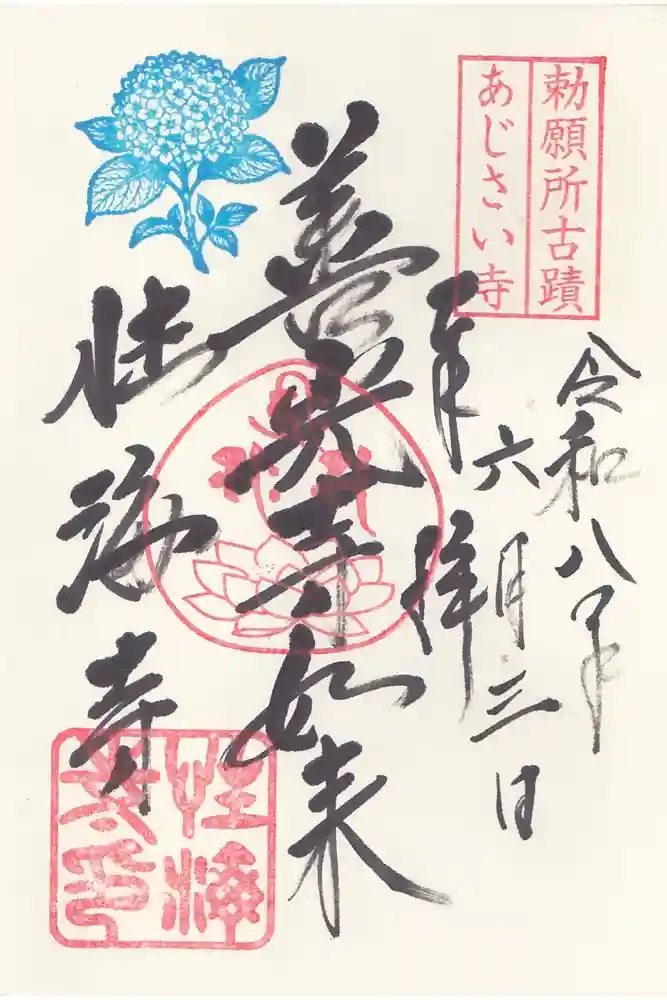 勅願所古蹟
あじさい寺
令和八年
六月三日
奉拝
善光寺如来
性海寺
性海
寺印